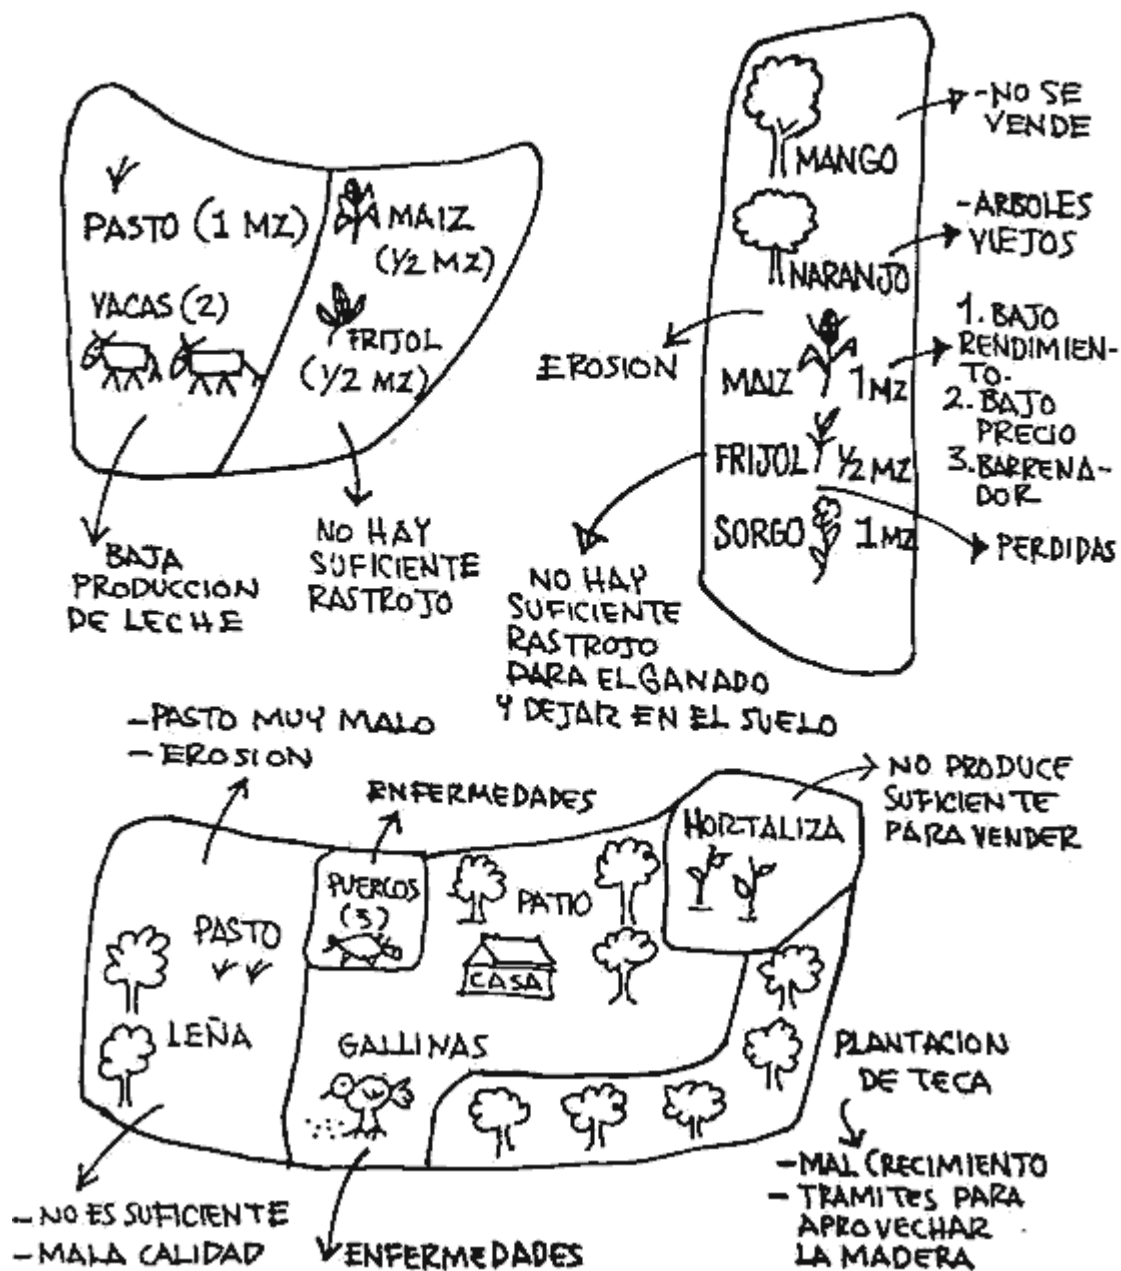 PASTO (1 MZ)
VACAS (2)
MAIZ
(1/2 MZ)
FRIJOL
(1/2 MZ)
BAJA
PRODUCCION
DE LECHE
NO HAY
SUFICIENTE
RASTROJO
MANGO
-NO SE
VENDE
NARANJO
-ARBOLES
VIEJOS
EROSION
MAIZ 1 MZ
1. BAJO
RENDIMIEN-
TO.
2. BAJO
PRECIO
3. BARRENA-
DOR
FRIJOL 1/2 MZ
SORGO 1 MZ
PERDIDAS
NO HAY
SUFICIENTE
RASTROJO
PARA EL GANADO
Y DEJAR EN EL SUELO
-PASTO MUY MALO
- EROSION
ENFERMEDADES
HORTALIZA
NO PRODUCE
SUFICIENTE
PARA VENDER
PUERCOS
(3)
PATIO
CASA
PASTO
LEÑA
GALLINAS
PLANTACION
DE TECA
-MAL CRECIMIENTO
- TRAMITES PARA
APROVECHAR
LA MADERA
- NO ES SUFICIENTE
- MALA CALIDAD
ENFERMEDADES